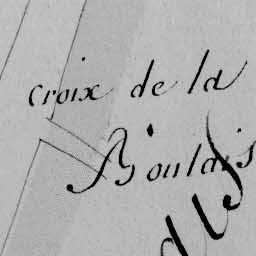 croix de la
Boulais